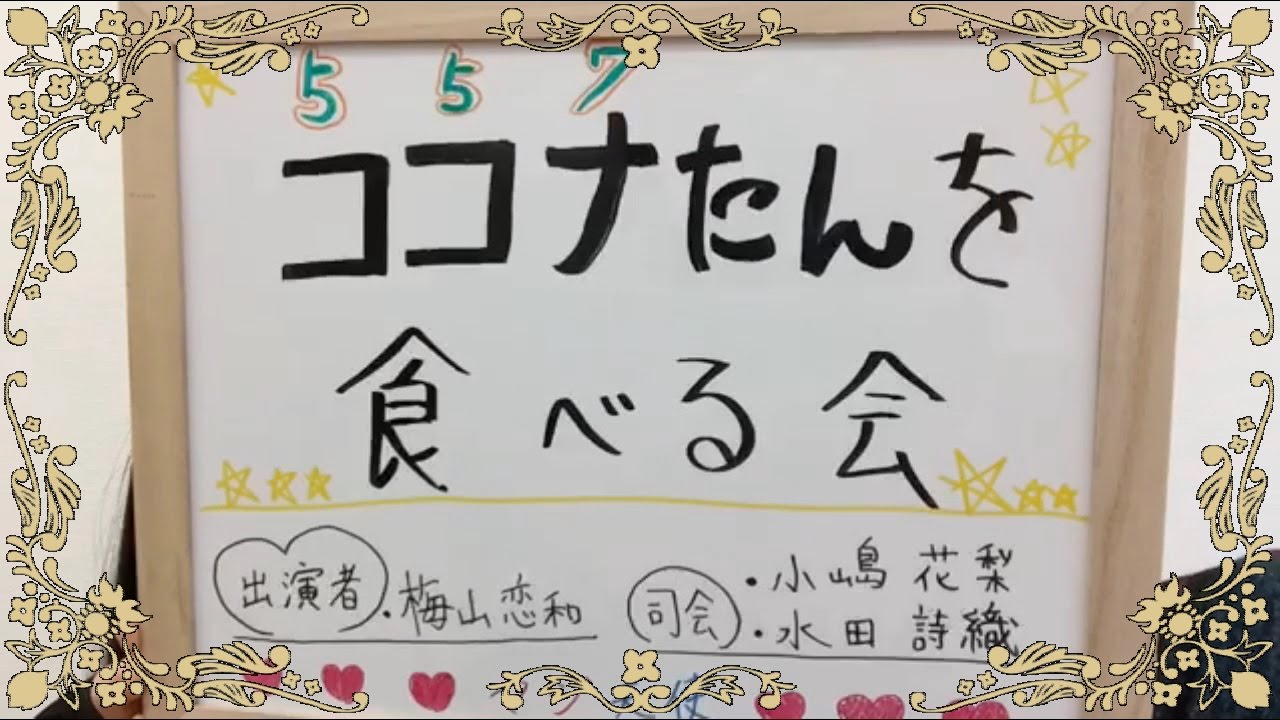 5 5 7
ココナたんを
食べる会
出演者 ・梅山恋和
司会 ・小嶋 花梨
・水田 詩織